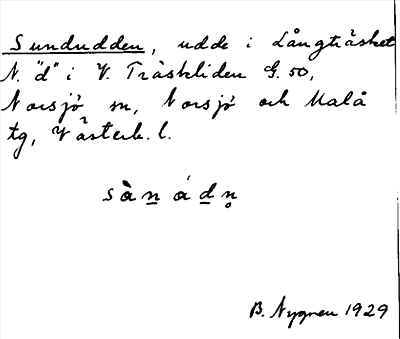 Sundudden, udde i Långträsket
N. "d" i V. Träskliden G. 50,
Norsjö sn, Norsjö och Malå
tg, Västerb. l.
sànádn̥
B. Nygren 1929